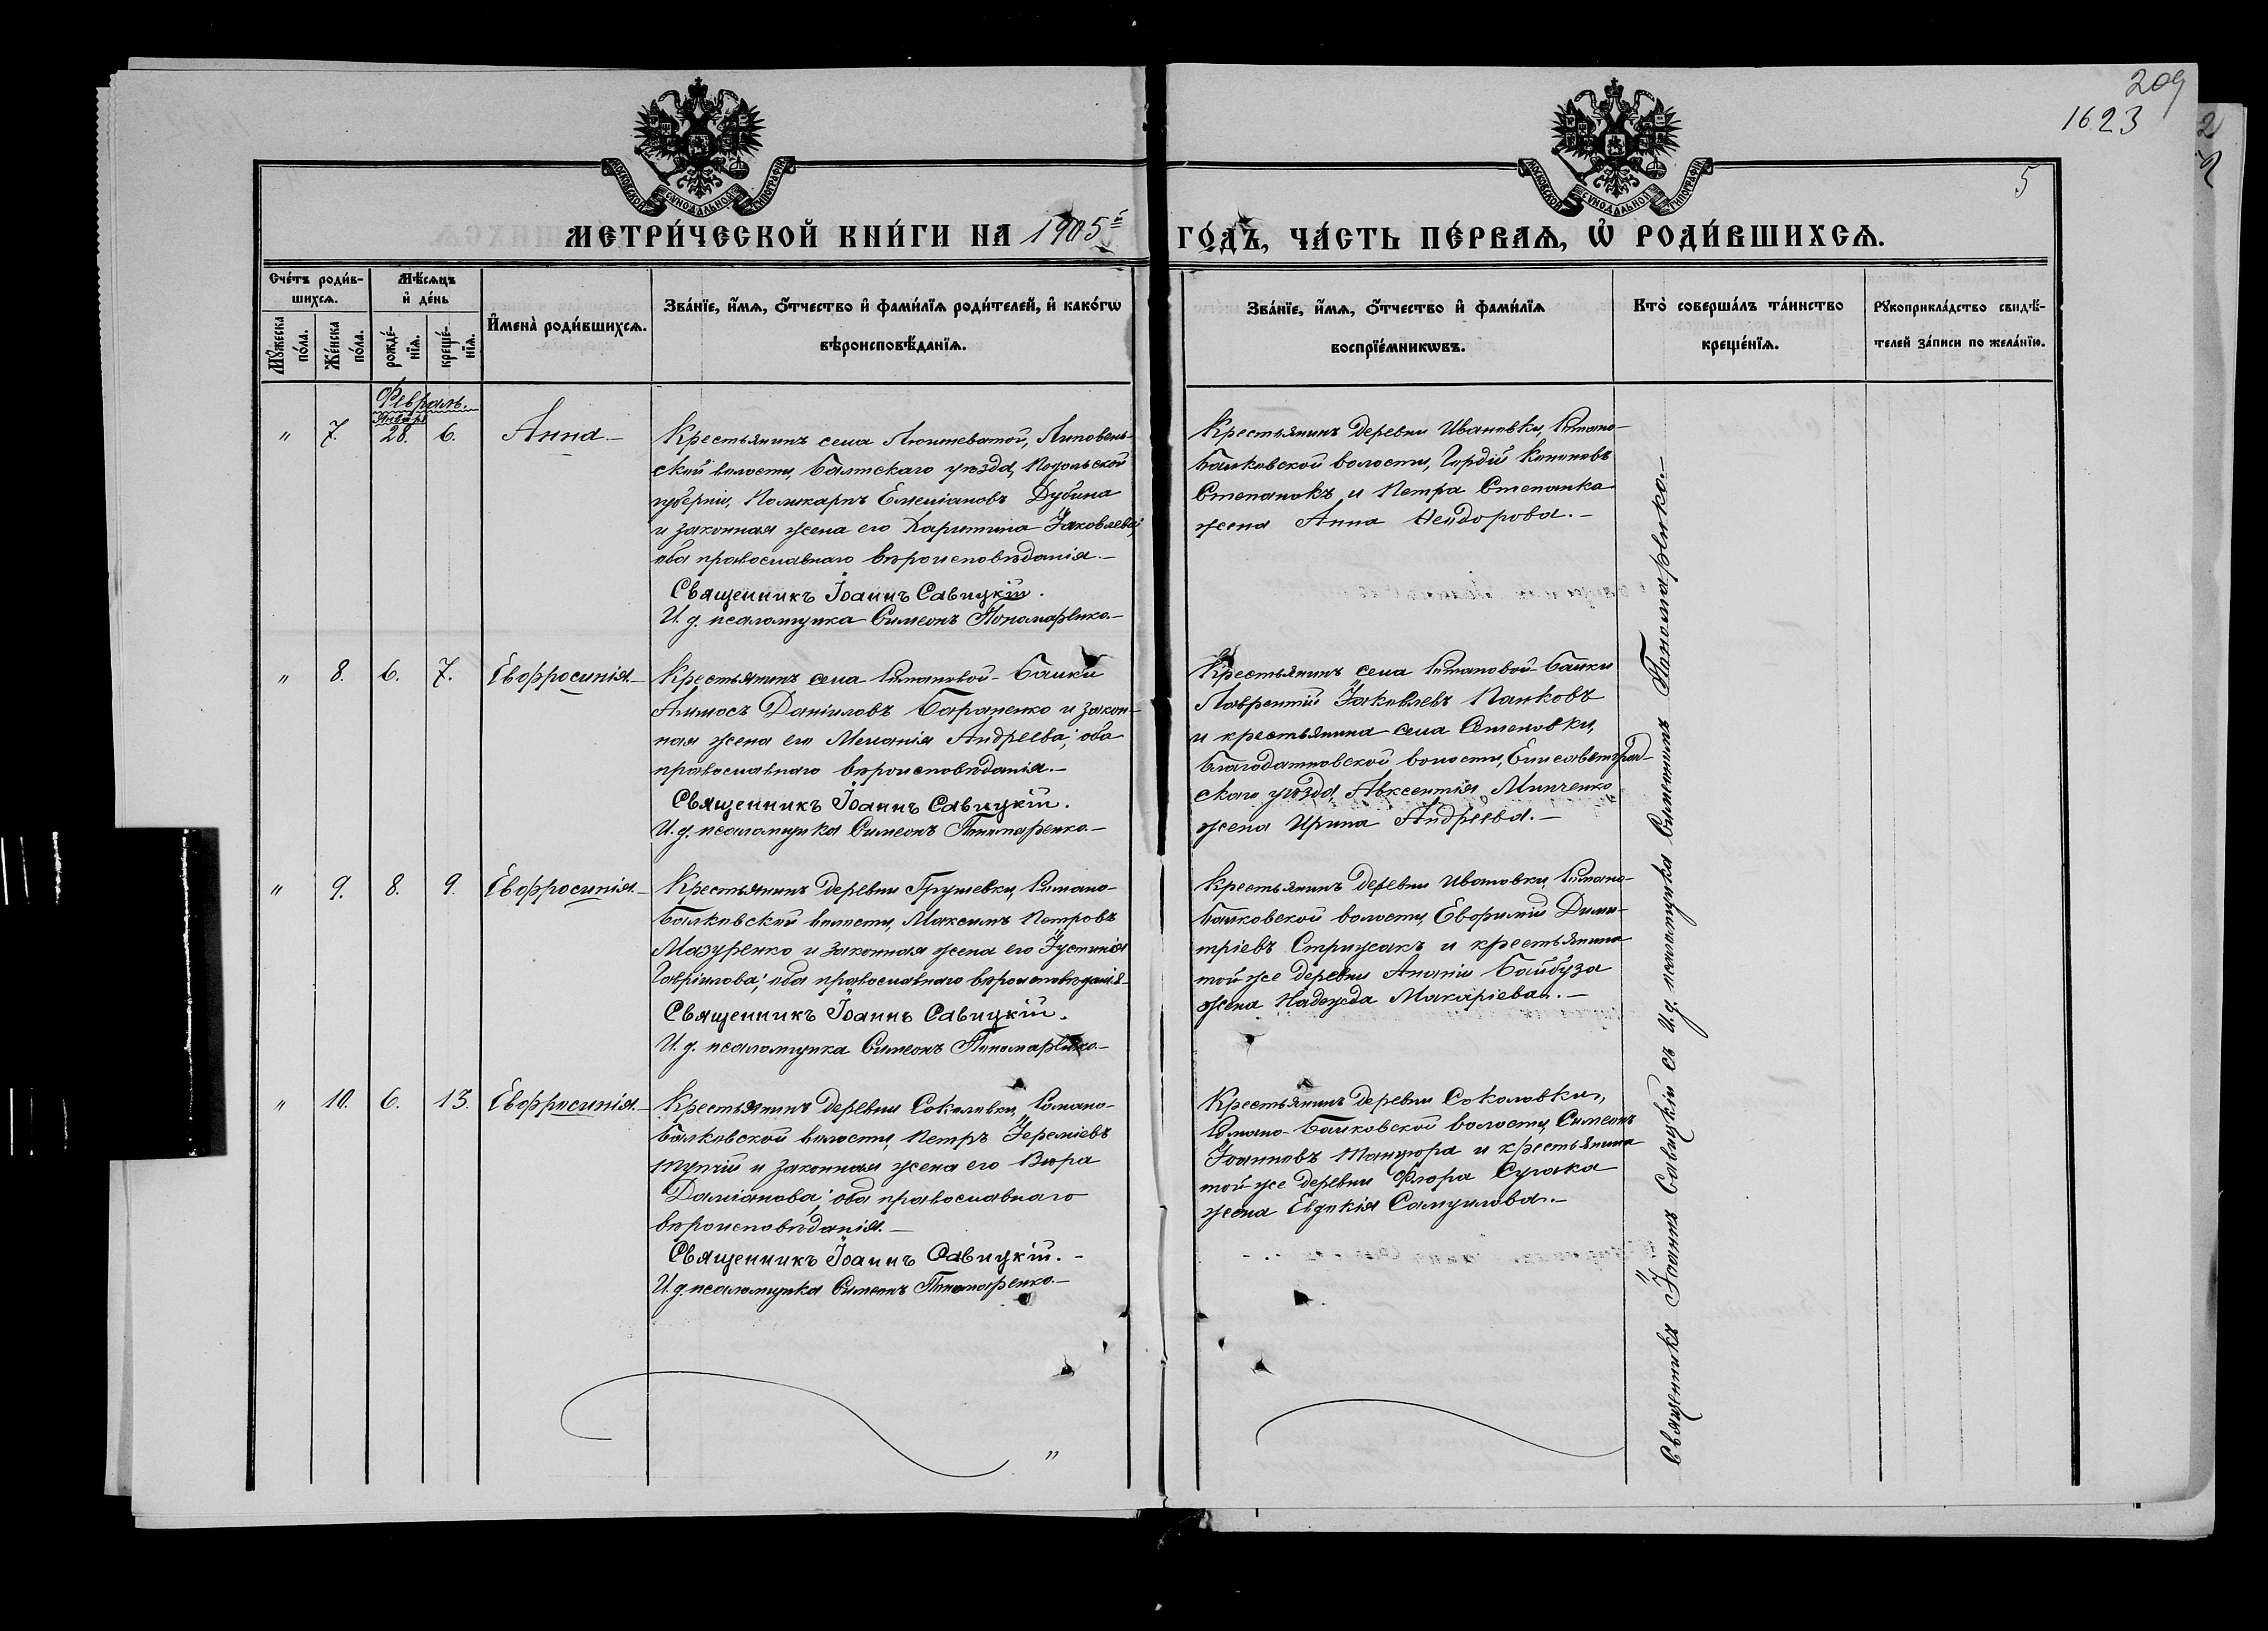 209
1623
5
МОСКОВСКОЙ СУНОДАЛЬНОЙ ТИПОГРАФІИ
МОСКОВСКОЙ СУНОДАЛЬНОЙ ТИПОГРАФІИ
МЕТРИ́ЧЕСКОЙ КНИ́ГИ НА 1905й ГО́ДЪ, ЧА́СТЬ ПЕ́РВАѦ, Ѡ҆ РОДИ́ВШИХСѦ.
Сче́тъ роди́в-
шихсѧ.
Мꙋ́жеска по́ла.
Же́нска по́ла.
Мѣ́сѧцъ и҆ де́нь
рожде́-
нїѧ.
креще́-
нїѧ.
И҆мена̀ роди́вшихсѧ.
Зва́нїе, и҆́мѧ, ѻ҆́тчество и҆ фами́лїѧ роди́телей, и҆ како́гѡ
вѣроисповѣ́данїѧ.
Зва́нїе, и҆́мѧ, ѻ҆́тчество и҆ фами́лїѧ
воспрїе́мникѡвъ.
Кто̀ соверша́лъ та́инство
креще́нїѧ.
Рꙋкоприкла́дство свидѣ́-
телей за́писи по жела́нїю.
Февраль.
Январь
" 7. 28. 6. Анна.—
Крестьянинъ села Люшневатой, Липовень-
ской волости, Балтскаго уѣзда, Подольской
губерніи, Поликарпъ Емеліановъ Дубина
и законная жена его Харитина Іаковлева;
оба православнаго вѣроисповѣданія.—
Священникъ Іоаннъ Савицкій.
И. д. псаломщика Симеонъ Пономаренко.—
Крестьянинъ деревни Ивановки, Романо-
Балковской волости, Гордій Кононовъ
Степанокъ и Петра Степанка
жена Анна Ѳеодорова.—
" 8. 6. 7. Евфросинія.—
Крестьянинъ села Романовой-Балки
Аммосъ Даніиловъ Бараненко и закон-
ная жена его Меланія Андреева; оба
православнаго вѣроисповѣданія.—
Священникъ Іоаннъ Савицкій.
И. д. псаломщика Симеонъ Пономаренко.—
Крестьянинъ села Романовой-Балки
Лаврентій Іаковлевъ Панковъ
и крестьянина села Семеновки,
Благодатновской волости, Елисаветград-
скаго уѣзда, Авксентія Минченко
жена Ирина Андреева.—
" 9. 8. 9. Евфросинія.—
Крестьянинъ деревни Грушевки, Романо-
Балковской волости, Максимъ Петровъ
Мазуренко и законная жена его Іустинія
Гавріилова; оба православнаго вѣроисповѣданія.—
Священникъ Іоаннъ Савицкій.
И. д. псаломщика Симеонъ Пономаренко.—
Крестьянинъ деревни Ивановки, Романо-
Балковской волости, Евфимій Дими-
тріевъ Стрижакъ и крестьянина
той же деревни Ананіи Байбуза
жена Надежда Макаріева.—
" 10. 6. 13. Евфросинія.—
Крестьянинъ деревни Соколовки, Романо-
Балковской волости, Петръ Іереміевъ
и законная жена его Вѣра
Даміанова; оба православнаго
вѣроисповѣданія.—
Священникъ Іоаннъ Савицкій.—
И. д. псаломщика Симеонъ Пономаренко.—
Крестьянинъ деревни Соколовки,
Романо-Балковской волости, Симеонъ
Іоанновъ и крестьянина
той же деревни Флора Сугака
жена Евдокія Самуилова.—
Священникъ Іоаннъ Савицкій съ И. д. псаломщика Симеономъ Пономаренко.—